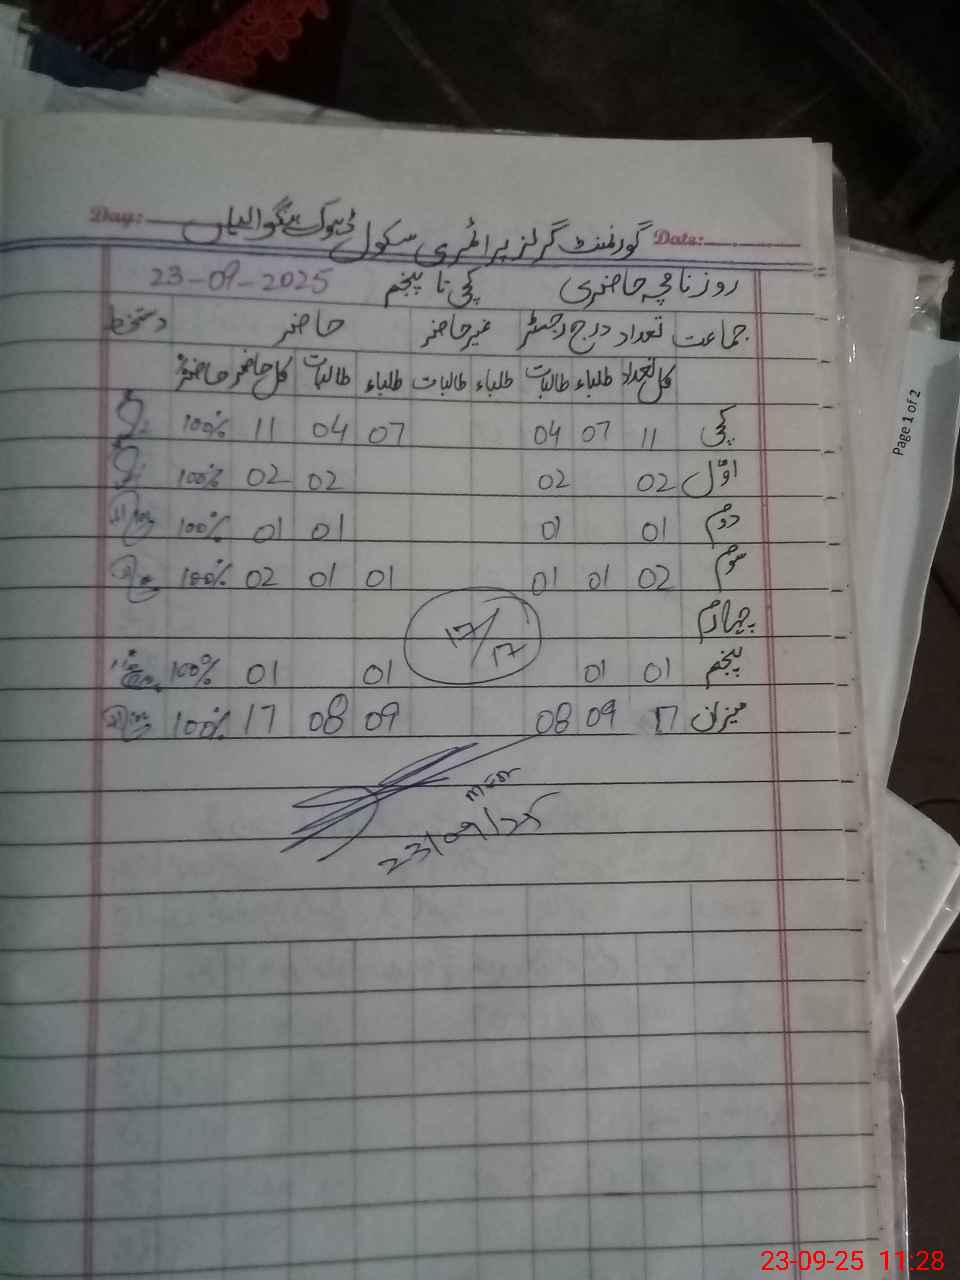 Day: Date:
گورنمنٹ گرلز پرائمری سکول ڈہوک ہنگوالیاں
روزنامچہ حاضری کچی تا پنجم 23-09-2025
جماعت تعداد درج رجسٹر غیر حاضر حاضر دستخط
کل تعداد طلباء طالبات طلباء طالبات طلباء طالبات کل حاضر حاضر%
کچی 11 07 04 07 04 11 100%
اوّل 02 02 02 02 100%
دوم 01 01 01 01 100%
سوم 02 01 01 01 01 02 100%
چہارم
پنجم 01 01 01 01 100%
17/17
میزان 17 09 08 09 08 17 100%
23/09/25
Page 1 of 2
23-09-25 11:28